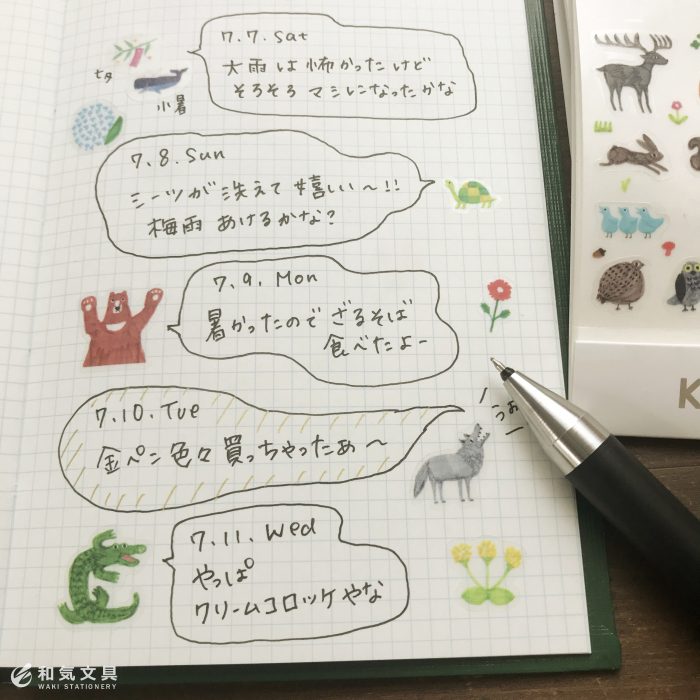 7.7.Sat
大雨は怖かったけど
そろそろ マシになったかな
七夕
小暑
7.8.Sun
シーツが洗えて嬉しい〜!!
梅雨あけるかな?
7.9.Mon
暑かったので ざるそば
食べたよー
7.10.Tue
金ペン色々買っちゃったぁ〜
うお
7.11.Wed
やっぱ
クリームコロッケやな
K
和気文具
WAKI STATIONERY